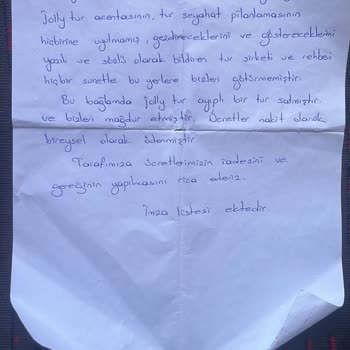 Jolly tur acentasının, tur seyahat pilanlamasının
hiçbirine uyulmamış, gezdireceklerini ve göstereceklerini
yazılı ve sözlü olarak bildiren tur şirketi ve rehberi
hiçbir suretle bu yerlere bizleri götürmemiştir.
Bu bağlamda jolly tur ayıplı bir tur satmıştır.
ve bizleri mağdur etmiştir. Ücretler nakit olarak
bireysel olarak ödenmiştir.
Tarafımıza ücretlerimizin iadesini ve
gereğinin yapılmasını rica ederiz.
İmza listesi ektedir.